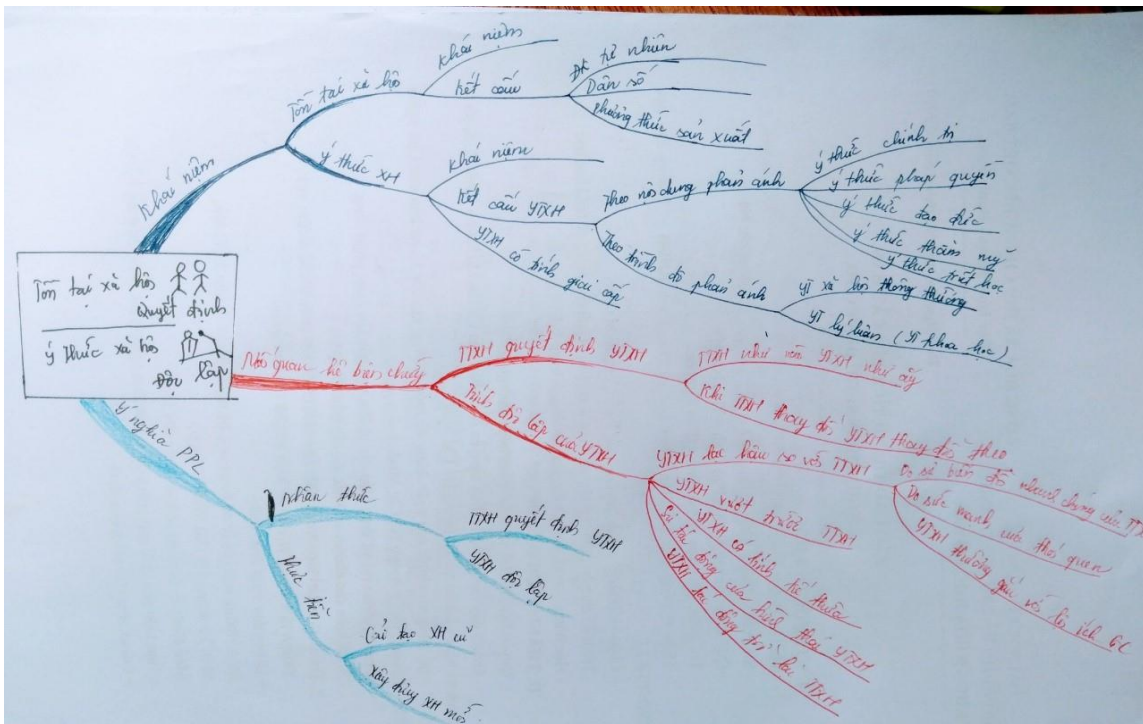 Tồn tại xã hội
Quyết định
ý thức xã hội
Độc lập
Khái niệm
Tồn tại xã hội
Khái niệm
Kết cấu
ĐK tự nhiên
Dân số
phương thức sản xuất
ý thức XH
Khái niệm
Kết cấu YTXH
Theo nội dung phản ánh
ý thức chính trị
ý thức pháp quyền
ý thức đạo đức
ý thức thẩm mỹ
ý thức triết học
Theo trình độ phản ánh
YT xã hội thông thường
YT lý luận (YT khoa học)
YTXH có tính giai cấp
Mối quan hệ biện chứng
TTXH quyết định YTXH
TTXH như nào YTXH như ấy
Khi TTXH thay đổi YTXH thay đổi theo
Tính độc lập của YTXH
YTXH lạc hậu so với TTXH
Do sự biến đổi nhanh chóng của TTX
Do sức mạnh của thói quen
YTXH thường gắn với lợi ích GC
YTXH vượt trước TTXH
YTXH có tính kế thừa
Sự tác động của hình thái YTXH
YTXH tác động trở lại TTXH
Ý nghĩa PPL
Nhận thức
TTXH quyết định YTXH
YTXH độc lập
Thực tiễn
Cải tạo XH cũ
Xây dựng XH mới